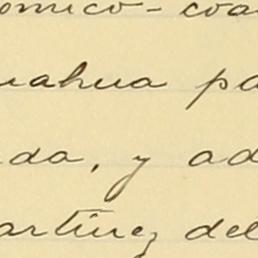 omico-coa
uahua pa
da, y ad
artínez del